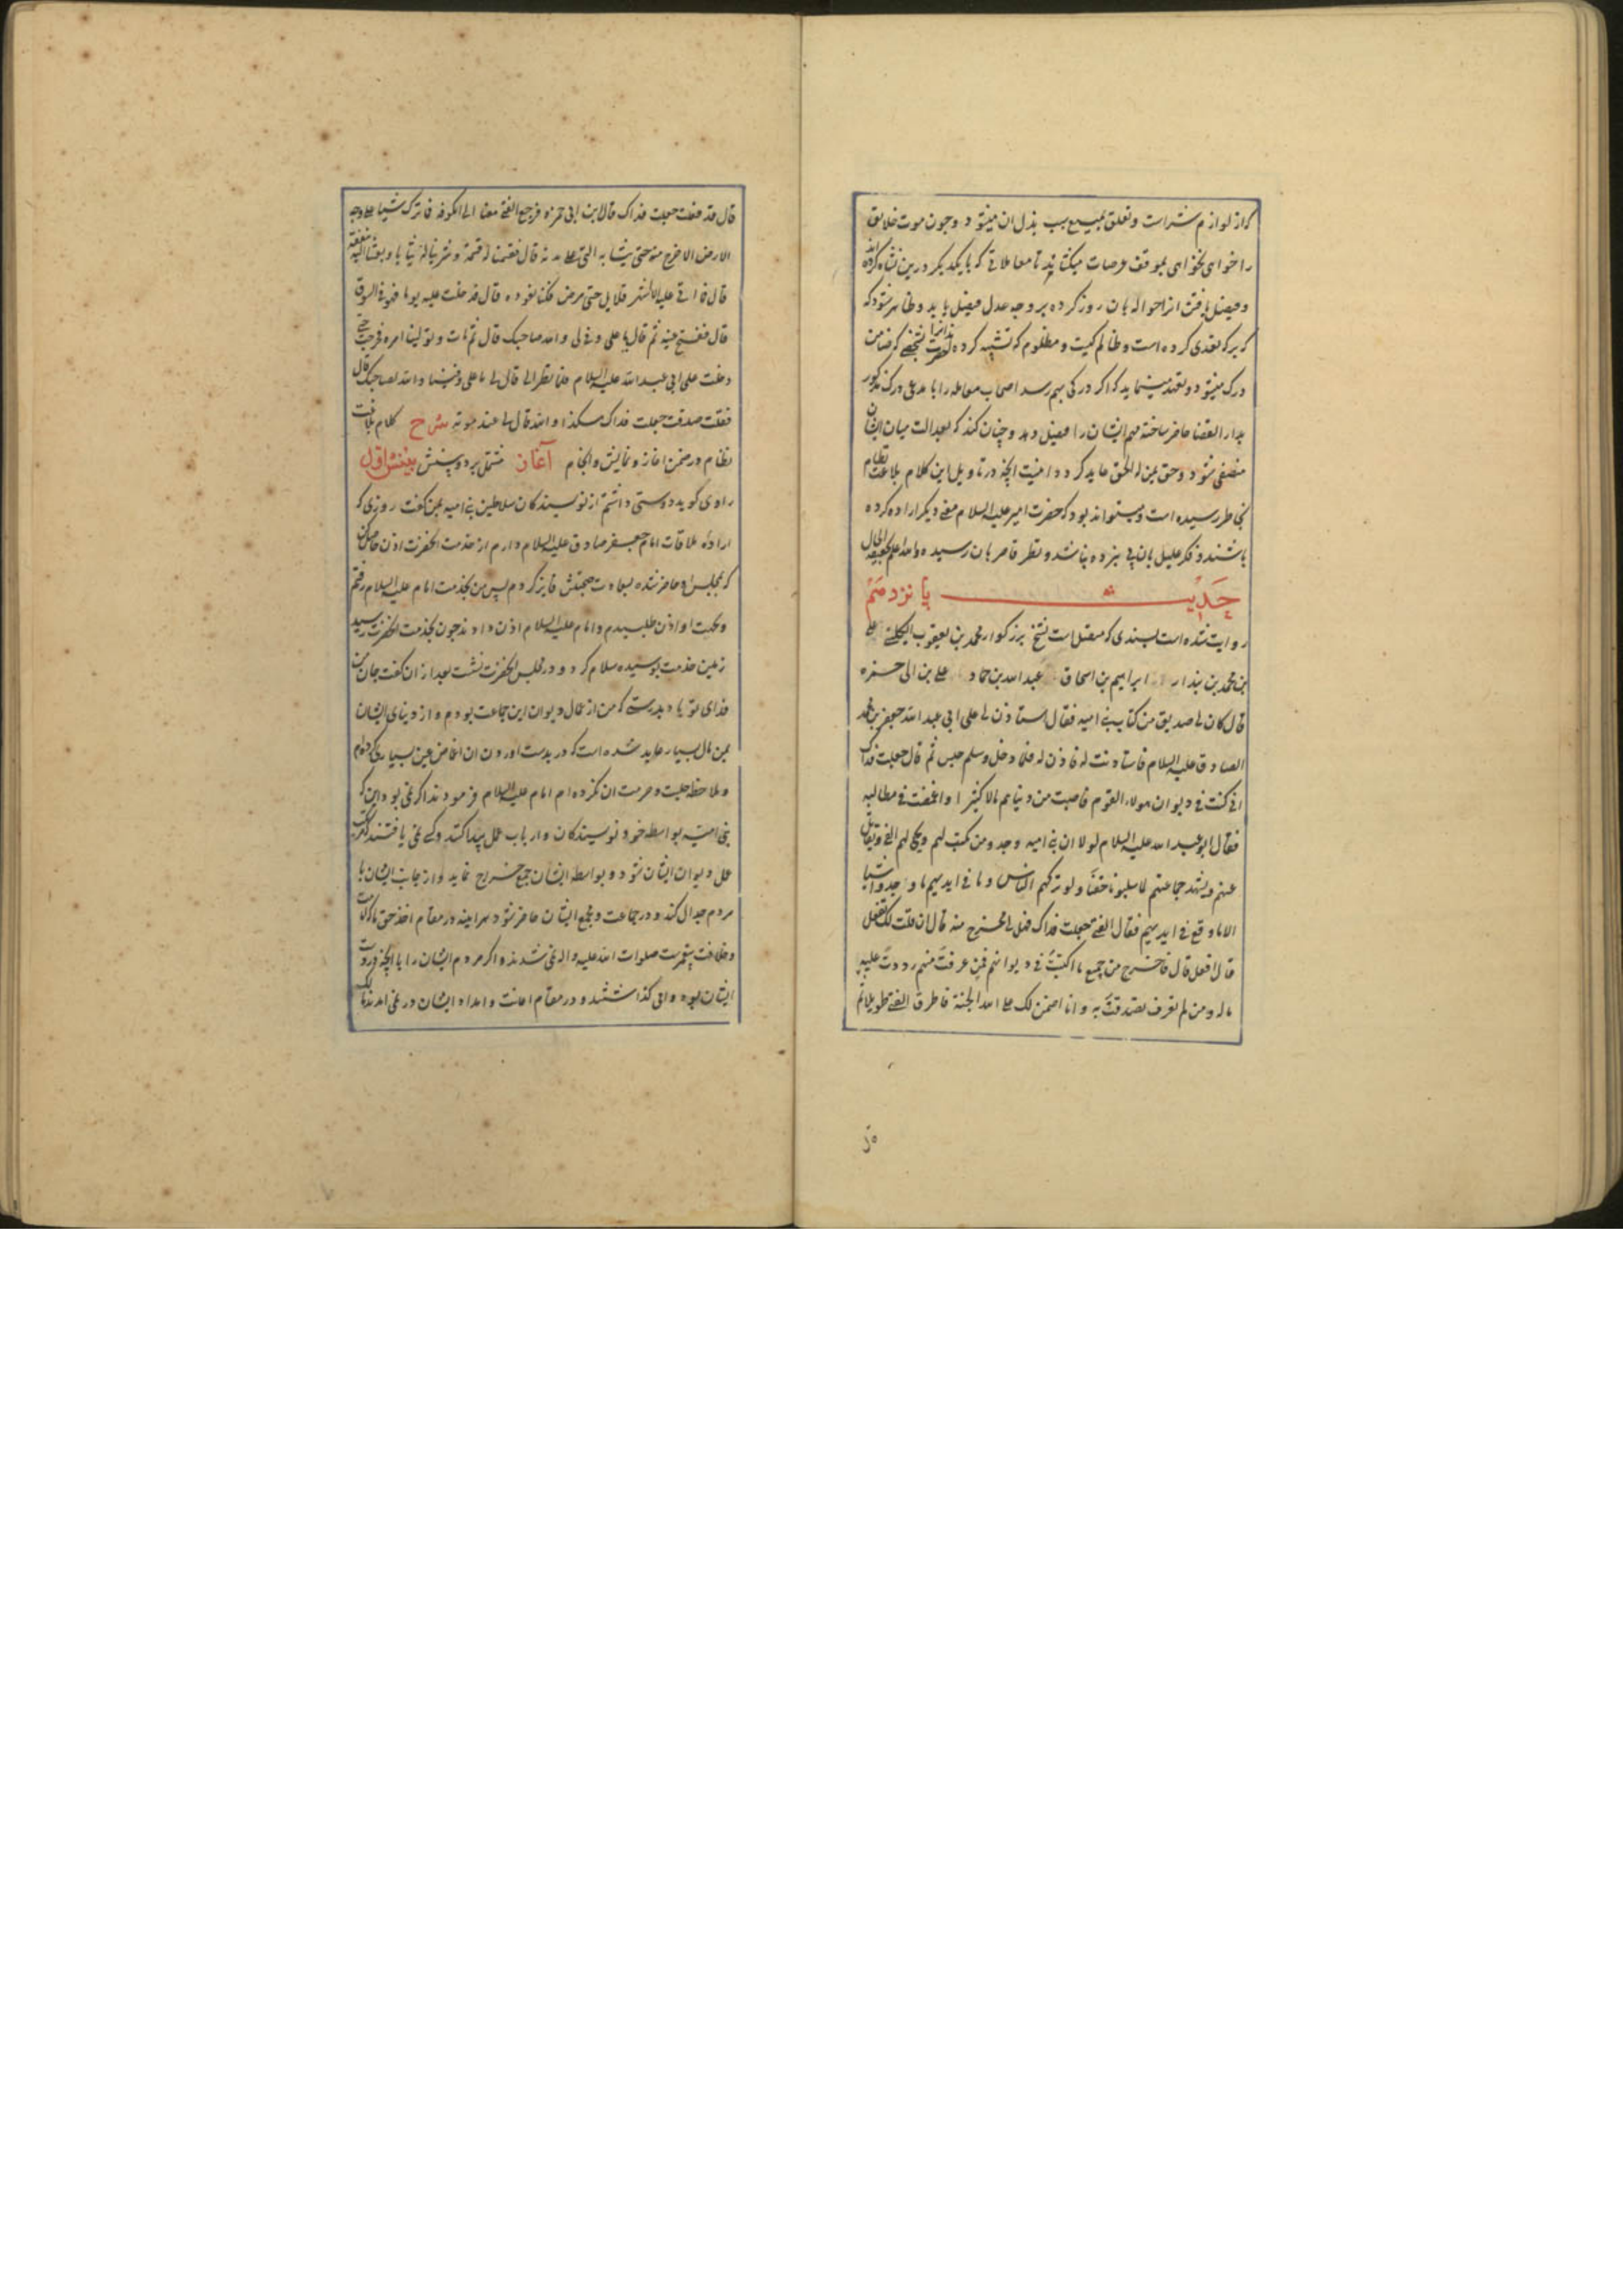 که از لوازم شراست و تعلق بمبیع بسبب بذل ان میشود و چون موت خلایق
را خواهی نخواهی بموقف عرصات میکشاند تا معاملاتی که با یکدیکر درین نشاه کرده اند
و فیصل یافتن انرا حواله بان روز کرده بر وجه عدل فیصل یابد و ظاهر شود که
که بر که تعدی کرده است و ظالم کیست و مظلوم که تشبیه کرده حضرت انرا بشخصی که ضامن
درک میشود و تعهد مینماید که اکر درکی بهم رسد اصحاب معامله را با مدعی درک مذکور
بدار القضا حاضر ساخته مهم ایشان را فیصل دهد و چنان کند که بعدالت میان ایشان
منقضی شود و حق بمن له الحق عاید کردد اینست انچه در تاویل این کلام بلاغت نظام
بخاطر رسیده است و میتواند بود که حضرت امیر علیه السلام معنی دیکر اراده کرده
باشند و فکر علیل بان پی نبرده باشد و نظر قاصر بان رسیده والله اعلم بحقیقة الحال
حدیث پانزدهم
روایت شده است بسندی که متصل است بشیخ بزرکوار محمد بن یعقوب الکلینی علی
بن محمد بن بندار ابراهیم بن اسحاق عبد الله بن حماد علی بن ابی حمزه
قال کان لی صدیق من کتاب بنی امیه فقال استاذن لی علی ابی عبد الله جعفر بن محمد
الصادق علیه السلام فاستاذنت له فاذن له فلما دخل وسلم جلس ثم قال جعلت فداک
انی کنت فی دیوان هولاء القوم فاصبت من دنیاهم مالا کثیرا واغمضت فی مطالبه
فقال ابو عبد الله علیه السلام لولا ان بنی امیه وجدو من یکتب لهم ویجبی لهم الفی ویقاتل
عنهم ویشهد جماعتهم لما سلبونا حقنا ولو ترکهم الناس وما فی ایدیهم ما وجدوا شیئا
الا ما وقع فی ایدیهم فقال الفتی جعلت فداک فهل لی مخرج منه قال ان قلت لک تفعل
قال افعل قال فاخرج من جمیع ما اکتسبت فی دیوانهم فمن عرفت منهم رددت علیه
ماله ومن لم تعرف تصدقت به وانا اضمن لک علی الله الجنة فاطرق الفتی طویلا ثم
قال قد فعلت جعلت فداک قال ابن ابی حمزه فرجع الفتی معنا الی الکوفه فما ترک شیئا علی وجه
الارض الا خرج منه حتی ثیابه التی علی بدنه قال فقسمنا له قسمة وشرینا له ثیابا وبعثنا الیه بنفقة
قال فما اتی علیه الا اشهر قلایل حتی مرض فکنا نعوده قال فدخلت علیه یوما وهو فی السوق
قال ففتح عینیه ثم قال یا علی وفی لی والله صاحبک قال ثم مات وتولینا امره فخرجت حتی
دخلت علی ابی عبد الله علیه السلام فلما نظر الی قال لی یا علی وفینا والله لصاحبک قال
فقلت صدقت جعلت فداک هکذا والله قال لی عند موته شرح کلام بلاغت
نظام در ضمن اغاز و نمایش و انجام آغاز مشتمل بر دو بینش بینش اول
راوی کوید دوستی داشتم از نویسندکان سلاطین بنی امیه بمن کفت روزی که
اراده ملاقات امام جعفر صادق علیه السلام دارم از خدمت انحضرت اذن حاصل کن
که بمجلس او حاضر شده بسعادت صحبتش فایز کردم پس من بخدمت امام علیه السلام رفتم
و بجهت او اذن طلبیدم و امام علیه السلام اذن دادند چون بخدمت انحضرت رسید
زمین خدمت بوسیده سلام کرد و در مجلس انحضرت نشست بعد از ان کفت جان من
فدای تو باد بدرستی که من از عمال دیوان این جماعت بودم و از دنیای ایشان
بمن مال بسیار عاید شده است که در بدست اوردن ان اغماض عین بسیار کرده ام
و ملاحظه حلیت و حرمت ان نکرده ام امام علیه السلام فرمودند اکر نمی بود این که
بنی امیه بواسطه خود نویسندکان و ارباب عمل پیدا کنند و کسی نمی یافتند که مرتکب
عمل دیوان ایشان شود و بواسطه ایشان جمع خراج نماید و از جانب ایشان با
مردم جدال کند و در جماعت و مجمع ایشان حاضر شود هراینه در مقام اخذ حق ما که امامت
و خلافت پیغمبر است صلوات الله علیه و اله نمی شدند و اکر مردم ایشان را با انچه در دست
ایشان بود وامی کذاشتند و در مقام اعانت و امداد ایشان در نمی امدند مالک